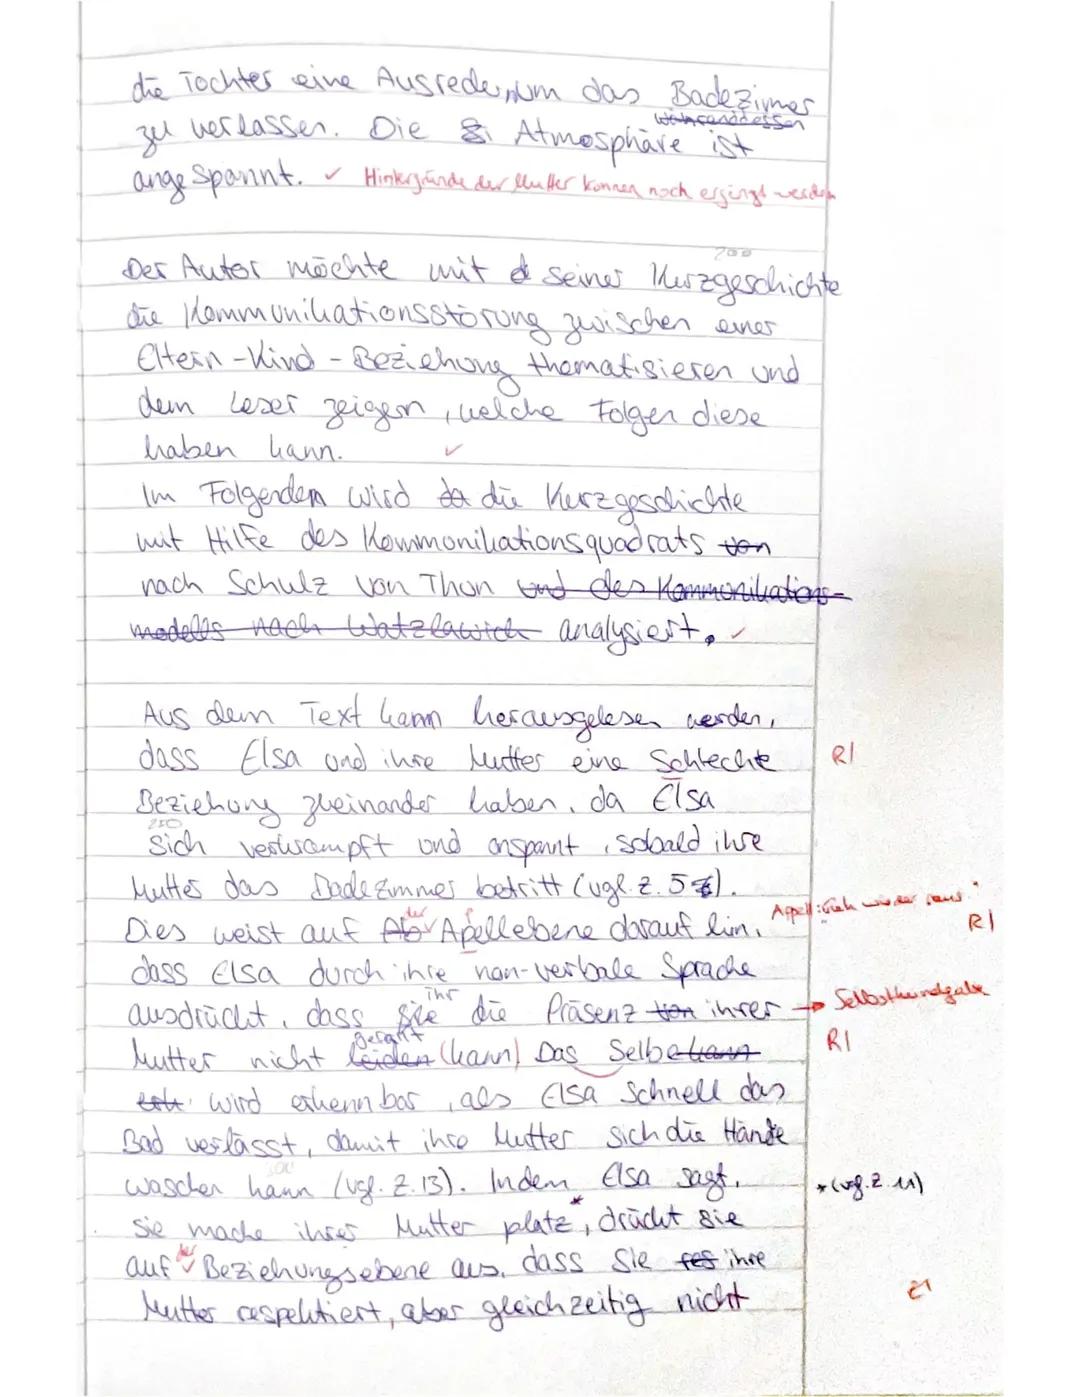 die Tochter eine Ausrede, um das Badezimmer
währenddessen
zu verlassen. Die Atmosphäre ist
angespannt. ✓ Hintergründe der Mutter können noch ergänzt werden
200
Der Autor möchte mit seiner Kurzgeschichte
die Kommunikationsstörung zwischen einer
Eltern-Kind-Beziehung thematisieren und
dem Leser zeigen, welche Folgen diese
haben kann. ✓
Im Folgenden wird die Kurzgeschichte
mit Hilfe des Kommunikationsquadrats von
nach Schulz von Thun und des Kommunikations-
modells nach Watzlawick analysiert. ✓
Aus dem Text kann herausgelesen werden,
dass Elsa und ihre Mutter eine Schlechte R|
Beziehung zueinander haben, da Elsa
250
sich verkrampft und anspannt, sobald ihre
Mutter das Badezimmer betritt (vgl. Z. 5).
Appell: Geh wieder raus!
Dies weist auf der Apellebene darauf hin, R|
dass Elsa durch ihre non-verbale Sprache
ausdrückt, dass ihr die Präsenz von ihrer → Selbstkundgabe
Mutter nicht leiden (kann) Das Selbe kann R|
wird erkennbar, als Elsa Schnell das
Bad verlässt, damit ihre Mutter sich die Hände
waschen kann (vgl. Z. 13). Indem Elsa sagt, *(vgl. Z. 11)
sie mache ihrer Mutter platz*, drückt sie
auf der Beziehungsebene aus, dass sie ihre
Mutter respektiert, aber gleichzeitig nicht